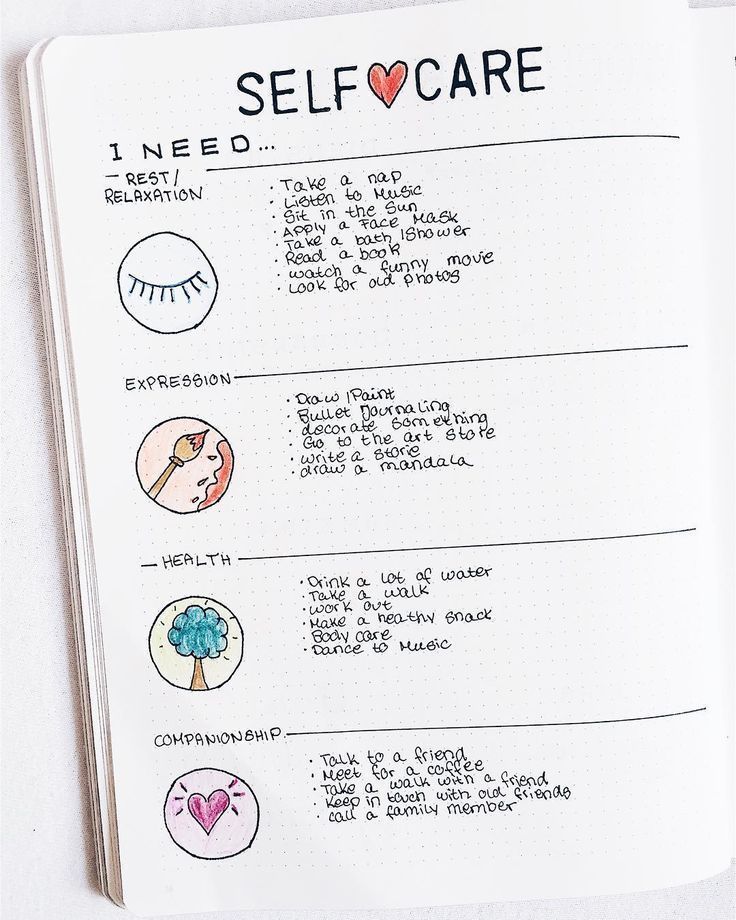 SELF CARE
I NEED...
REST/
RELAXATION
· Take a nap
· Listen to Music
· Sit in the Sun
· Apply a Face Mask
· Take a bath /Shower
· Read a book
· watch a funny movie
· Look for old photos
EXPRESSION
· Draw /Paint
· Bullet Journaling
· decorate something
· Go to the art store
· write a storie
· draw a mandala
HEALTH
· Drink a lot of water
· Take a walk
· work out
· Make a heathy snack
· Body care
· Dance to Music
COMPANIONSHIP
· Talk to a friend
· Meet for a coffee
· Take a walk with a friend
· Keep in touch with old friends
· call a family member